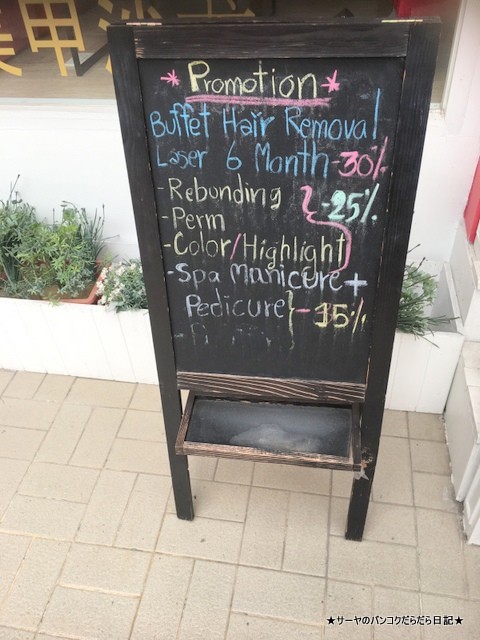 美甲沙
*Promotion*
Buffet Hair Removal
Laser 6 Month -30%
-Rebonding
-Perm
-Color/Highlight
-25%
-Spa Manicure+
Pedicure -15%
★サーヤのバンコクだらだら日記★